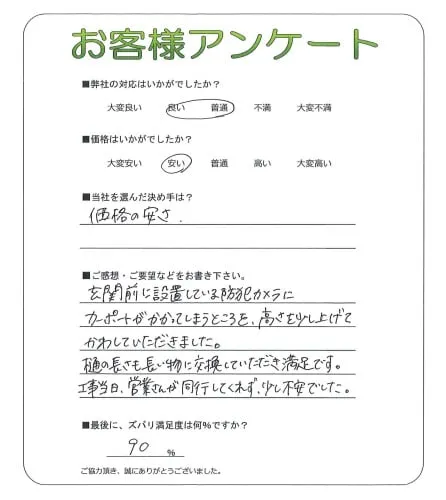 お客様アンケート
■弊社の対応はいかがでしたか？
大変良い 良い 普通 不満 大変不満
■価格はいかがでしたか？
大変安い 安い 普通 高い 大変高い
■当社を選んだ決め手は？
価格の安さ.
■ご感想・ご要望などをお書き下さい。
玄関前に設置している防犯カメラに
カーポートがかかってしまうところを、高さを少し上げて
かわしていただきました。
樋の長さも長い物に交換していただき満足です。
工事当日、営業さんが同行してくれず、少し不安でした。
■最後に、ズバリ満足度は何%ですか？
90 %
ご協力頂き、誠にありがとうございました。